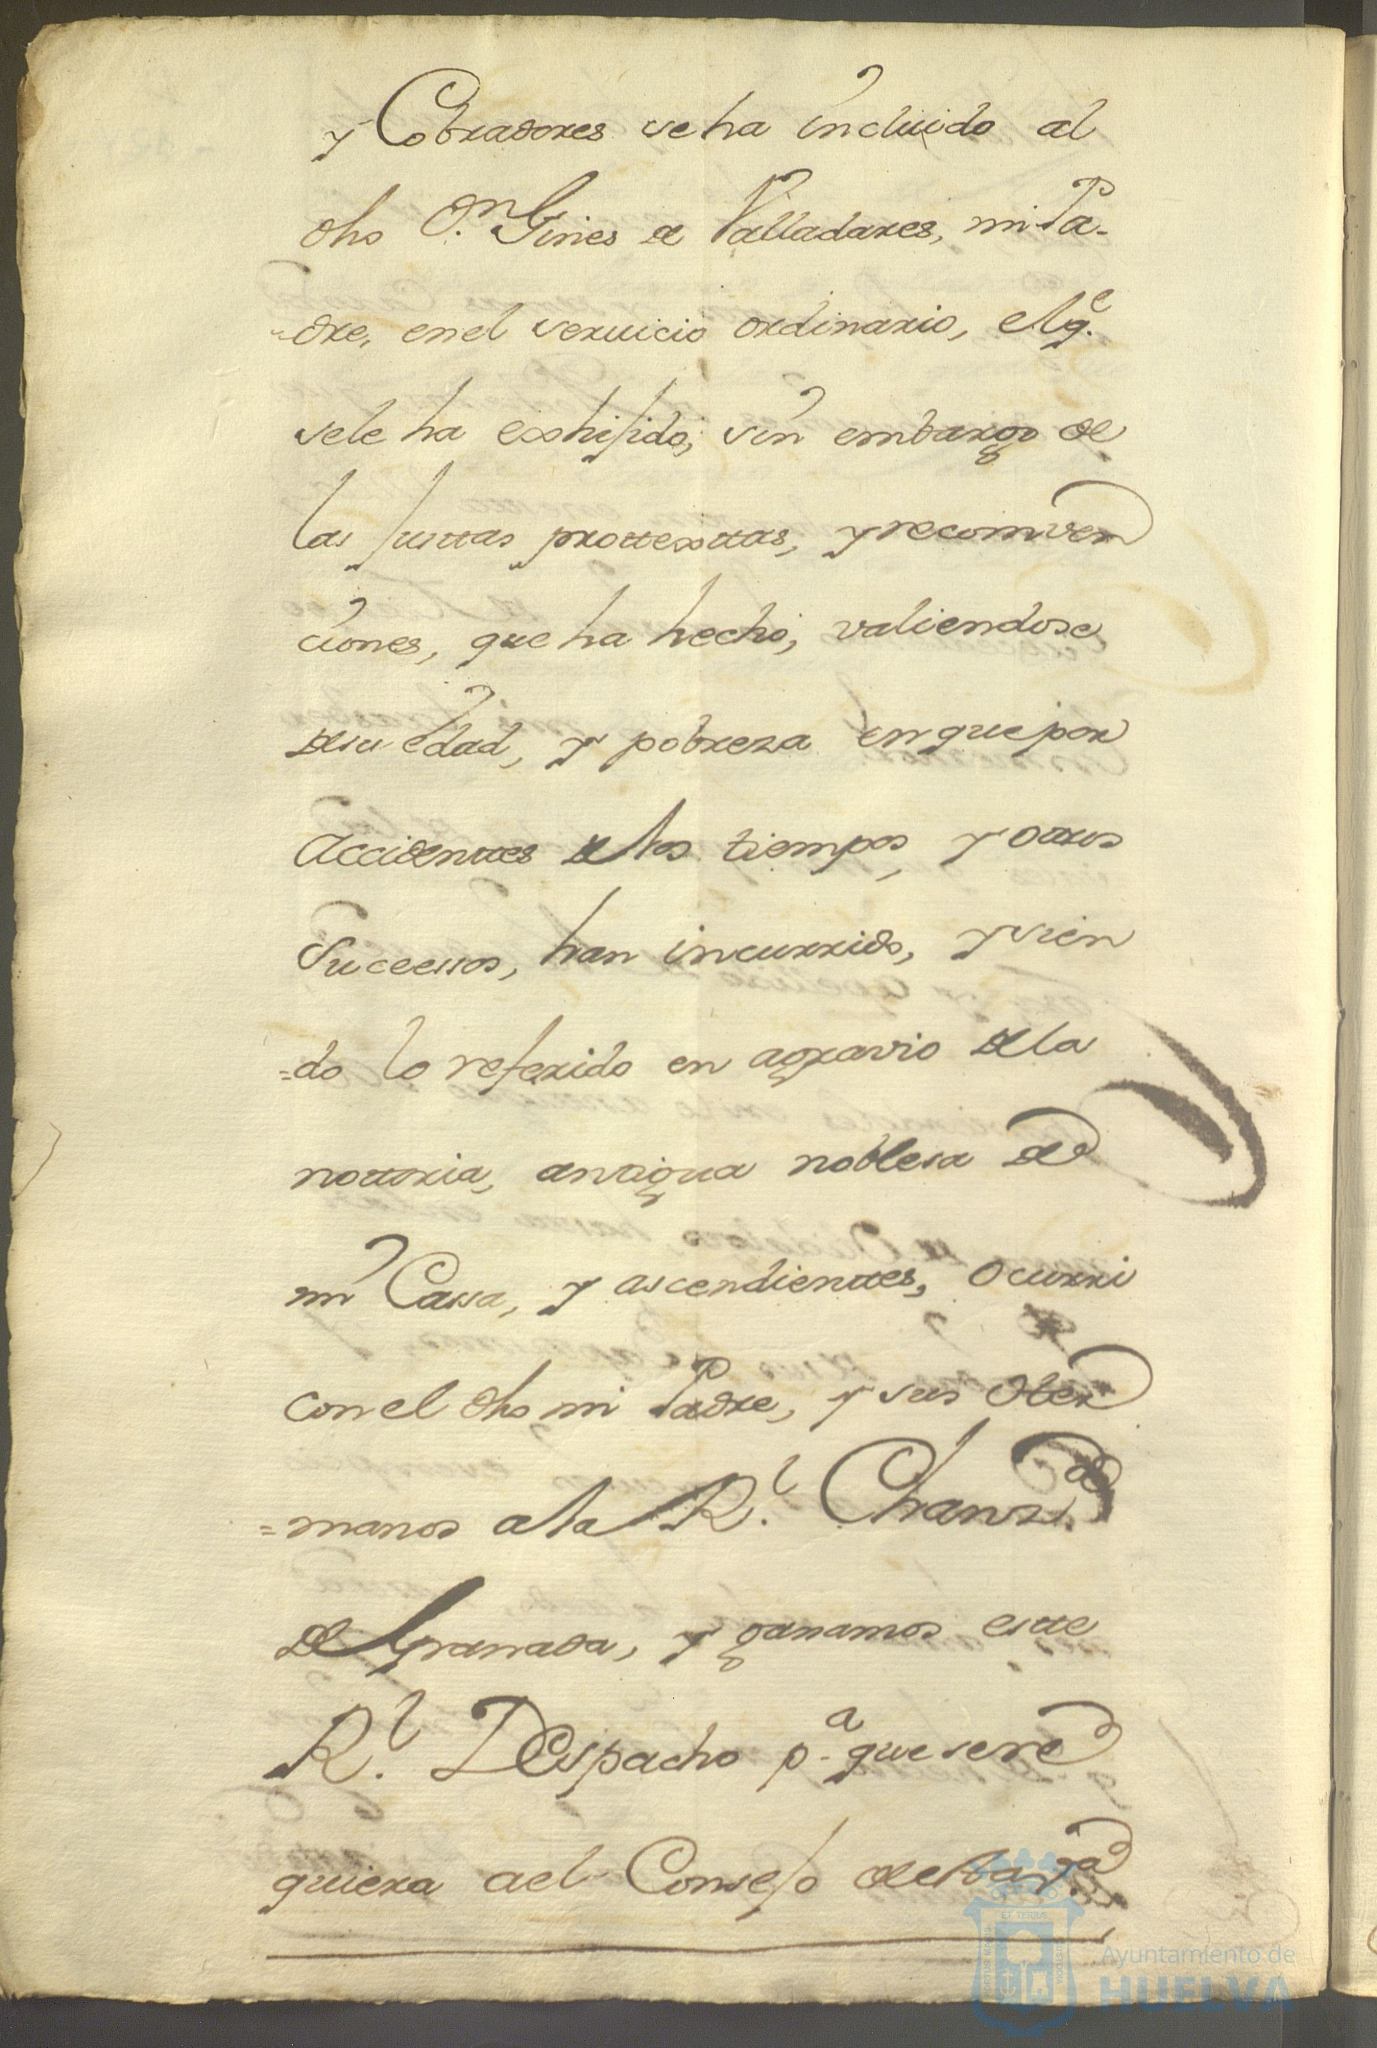 y Cobradores se ha incluido al
dho Dn. Gines de Valladares, mi Pa-
-dre, en el seruicio ordinario, el q.e
se le ha exshijido, sin embargo de
las justtas prottexttas, y reconven
ciones, que ha hecho, valiendose
de su edad, y pobreza en que por
Accidenttes de los tiempos, y ottros
Sucessos, han incurrido, y sien
=do lo referido en agravio de la
nottoria, antigua noblesa de
mi Cassa, y ascendienttes, ocurri
con el dho mi Padre, y sus Her
=manos a la R.l Chanz.
de Granada, y ganamos estte
R.l Despacho p.a que se re
quiera ael Consejo de
Ayuntamiento de
HUELVA